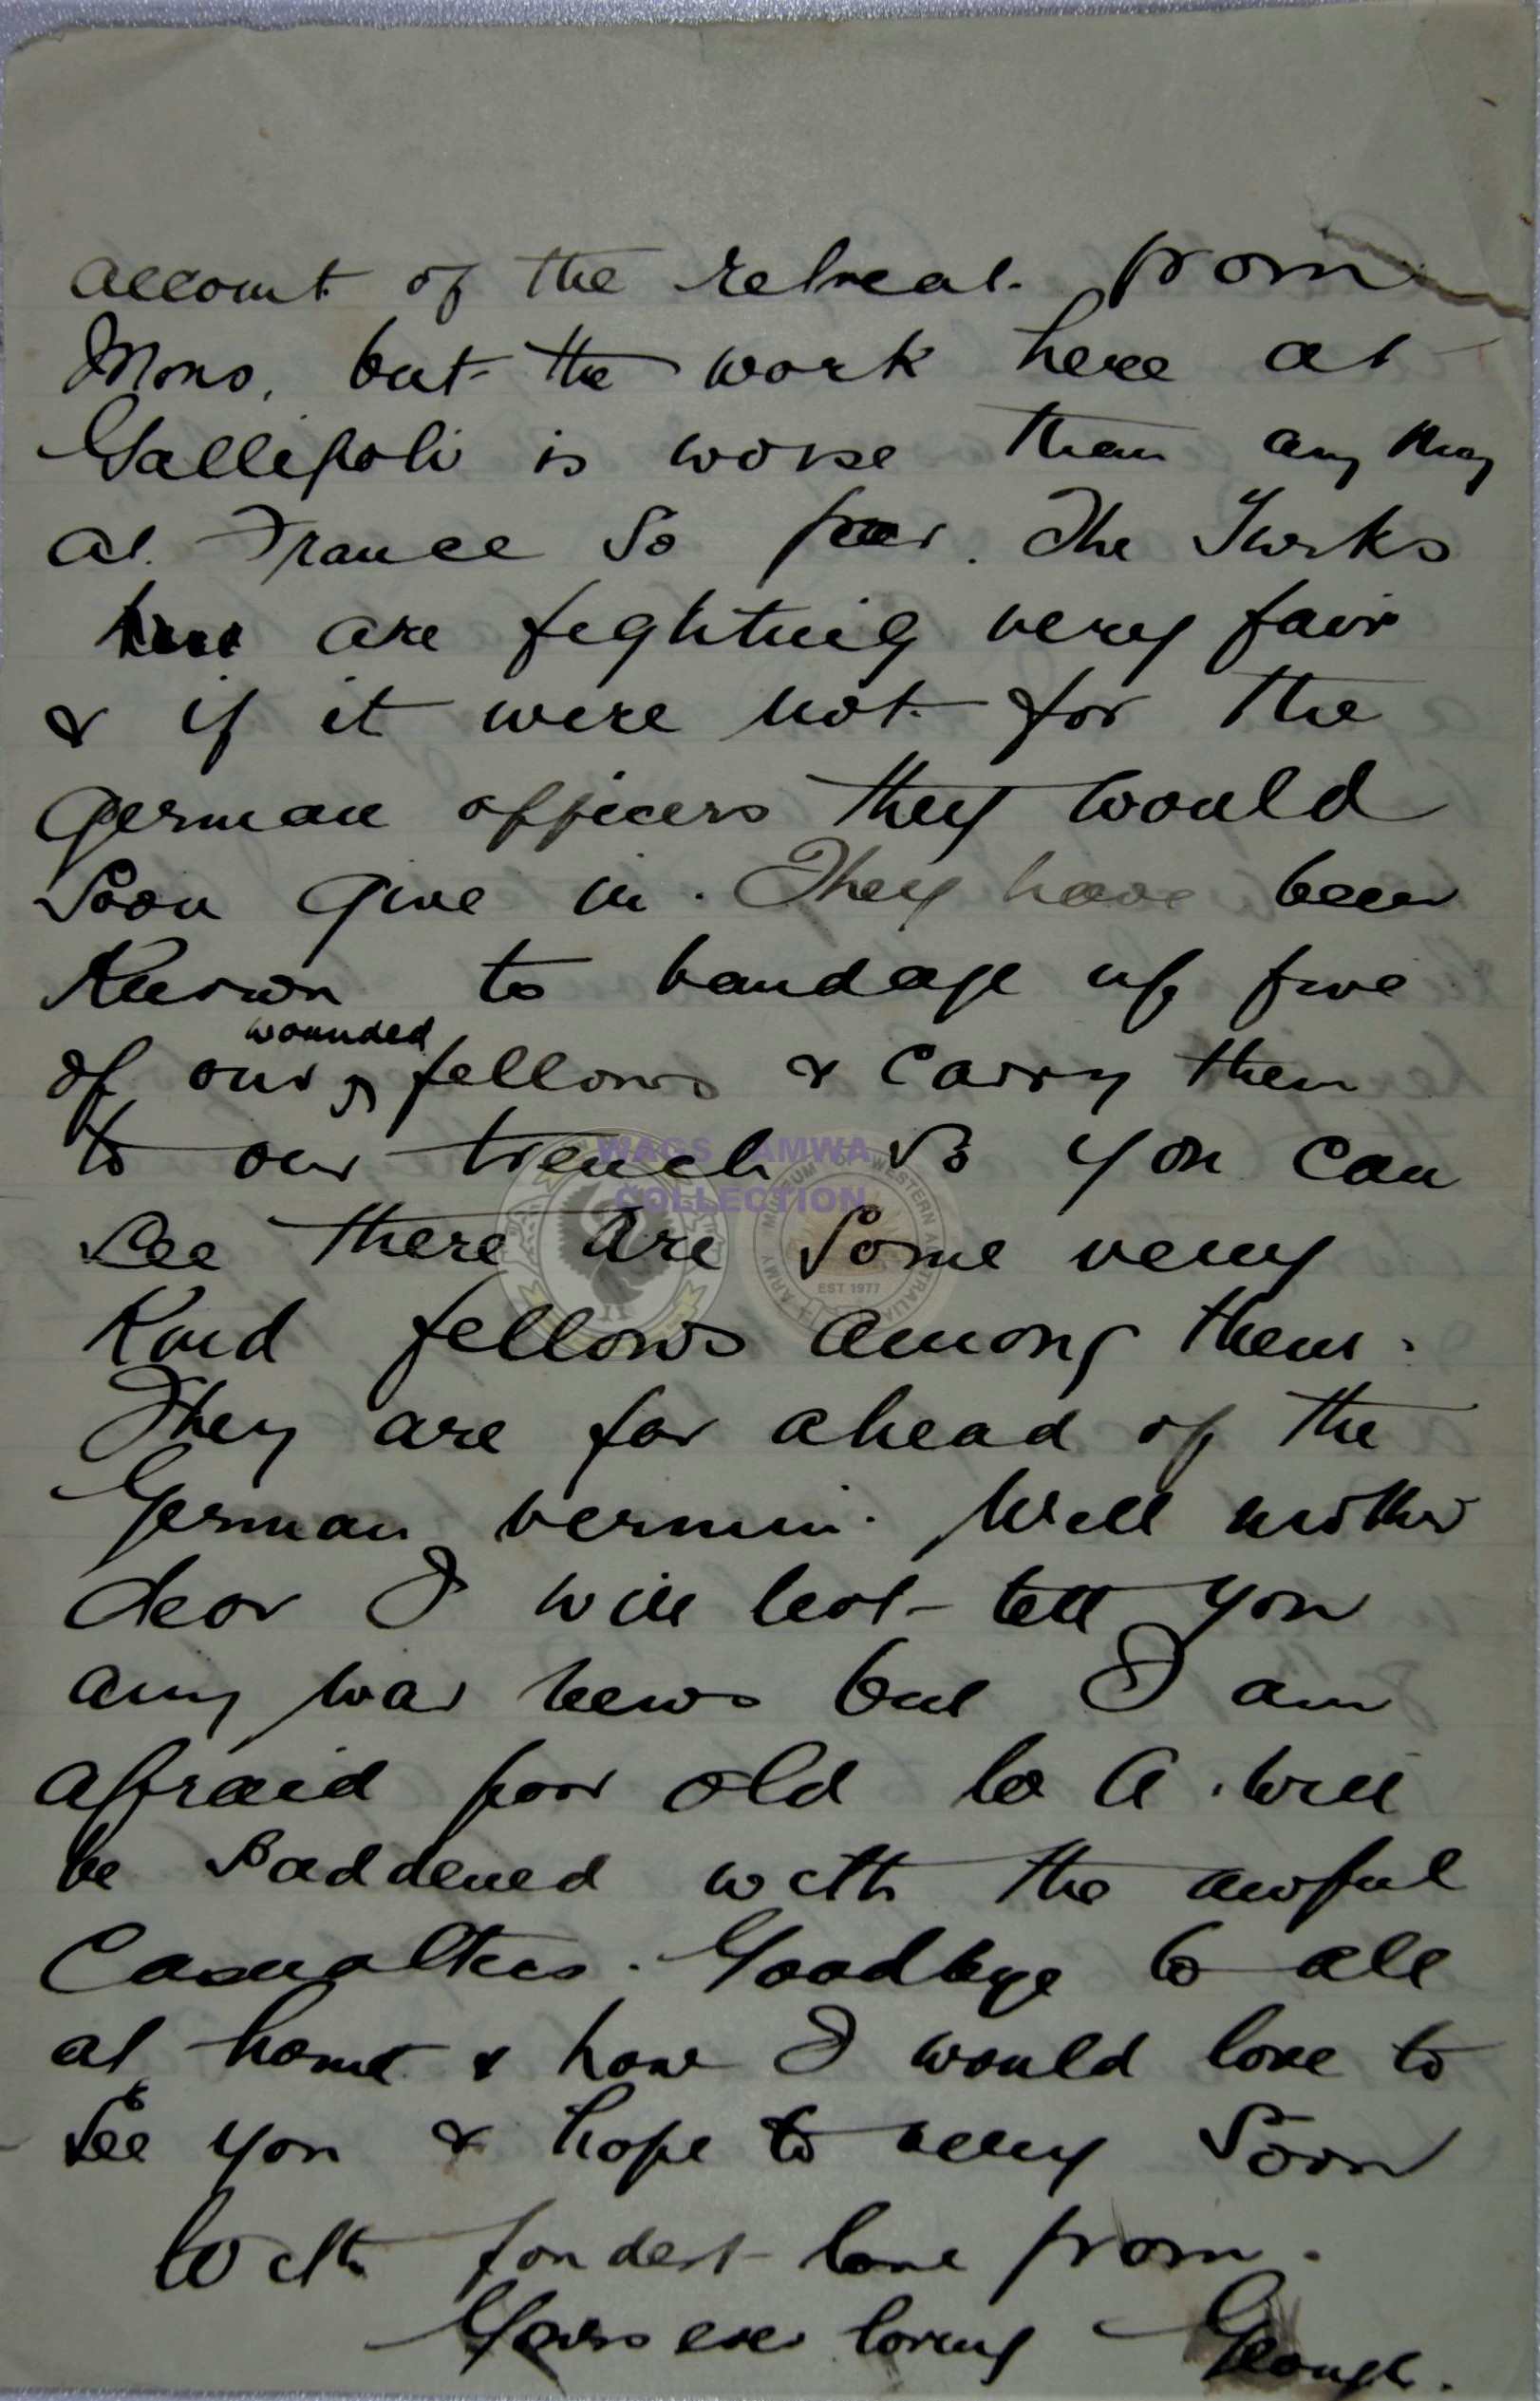 account of the retreat from
Mons, but the work here at
Gallipoli is worse than any thing
at France so far. The Turks
are fighting very fair
& if it were not for the
German officers they would
soon give in. They have been
known to bandage up five
wounded
of our fellows & carry them
to our trench so you can
see there are some very
kind fellows among them.
They are far ahead of the
German vermin. Well mother
dear I will not tell you
any war news but I am
afraid poor old W A. will
be saddened with the awful
Casualties. Goodbye to all
at home & how I would love to
see you & hope to very soon
With fondest love from.
Yours ever loving
WAGS AMWA
COLLECTION
MUSEUM OF WESTERN AUSTRALIA
ARMY
EST 1977